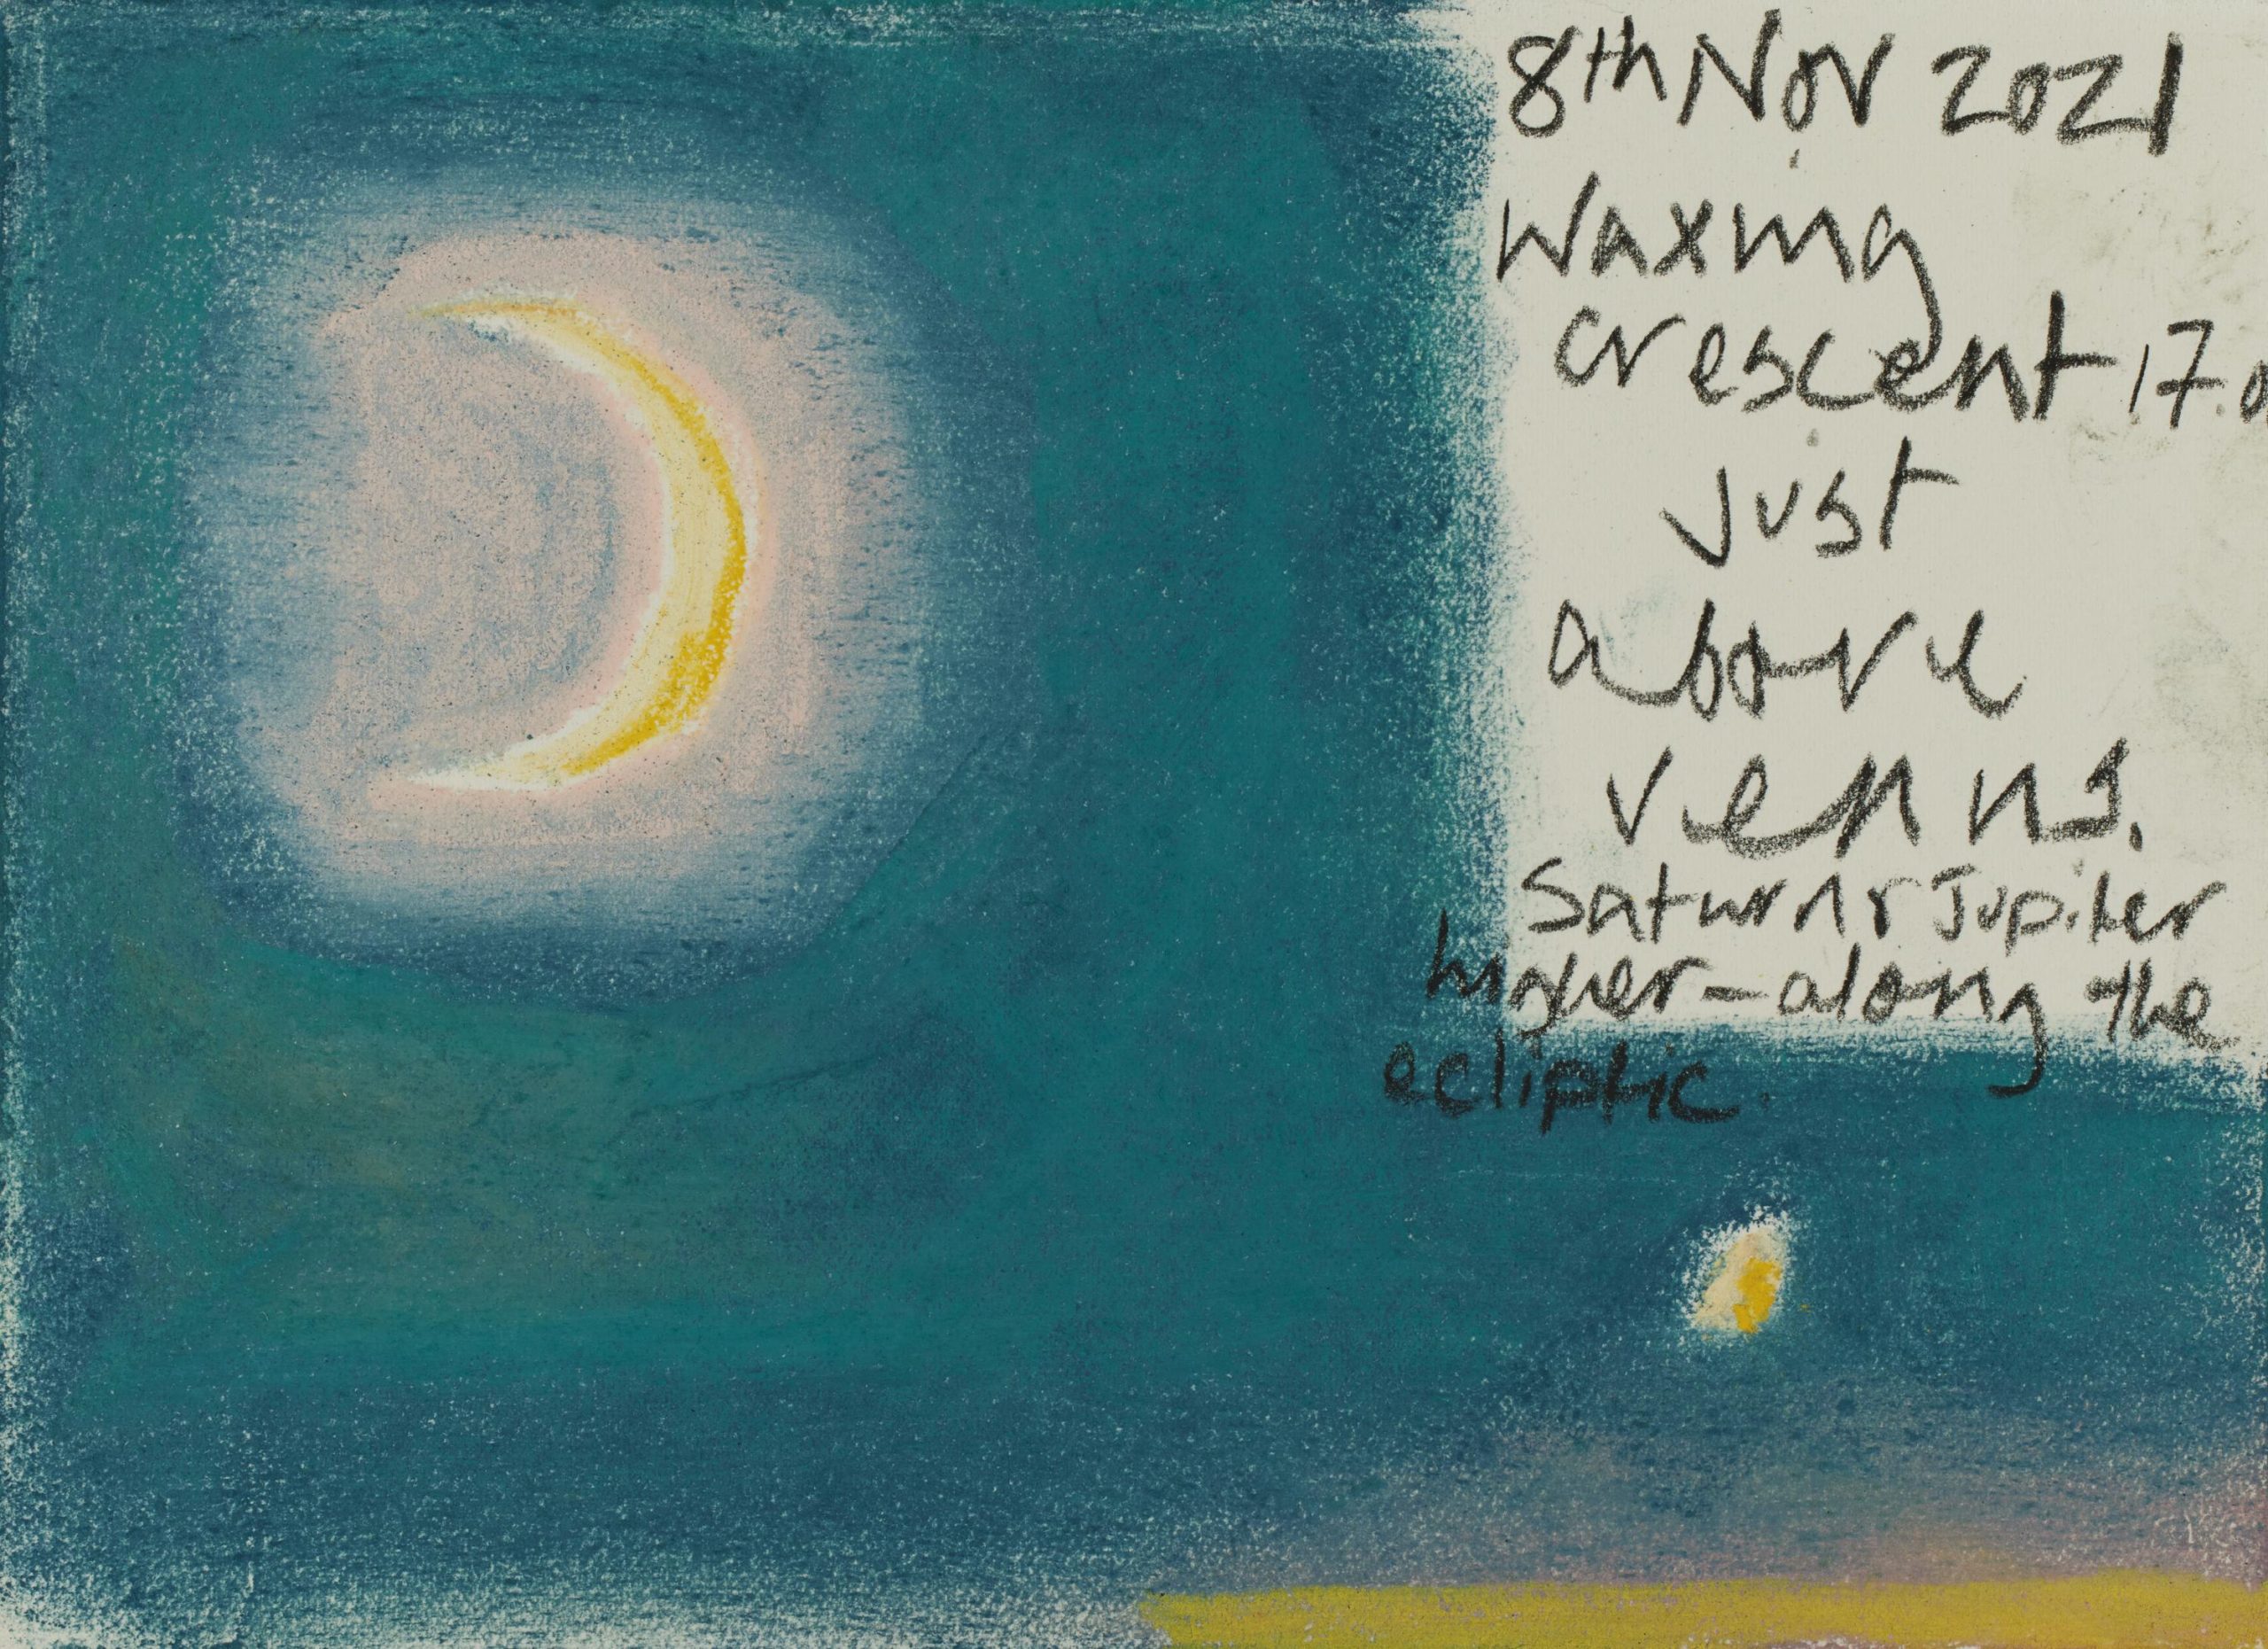 8th Nov 2021
Waxing
crescent 17.0
just
above
venus.
Saturn & Jupiter
higher - along the
ecliptic.